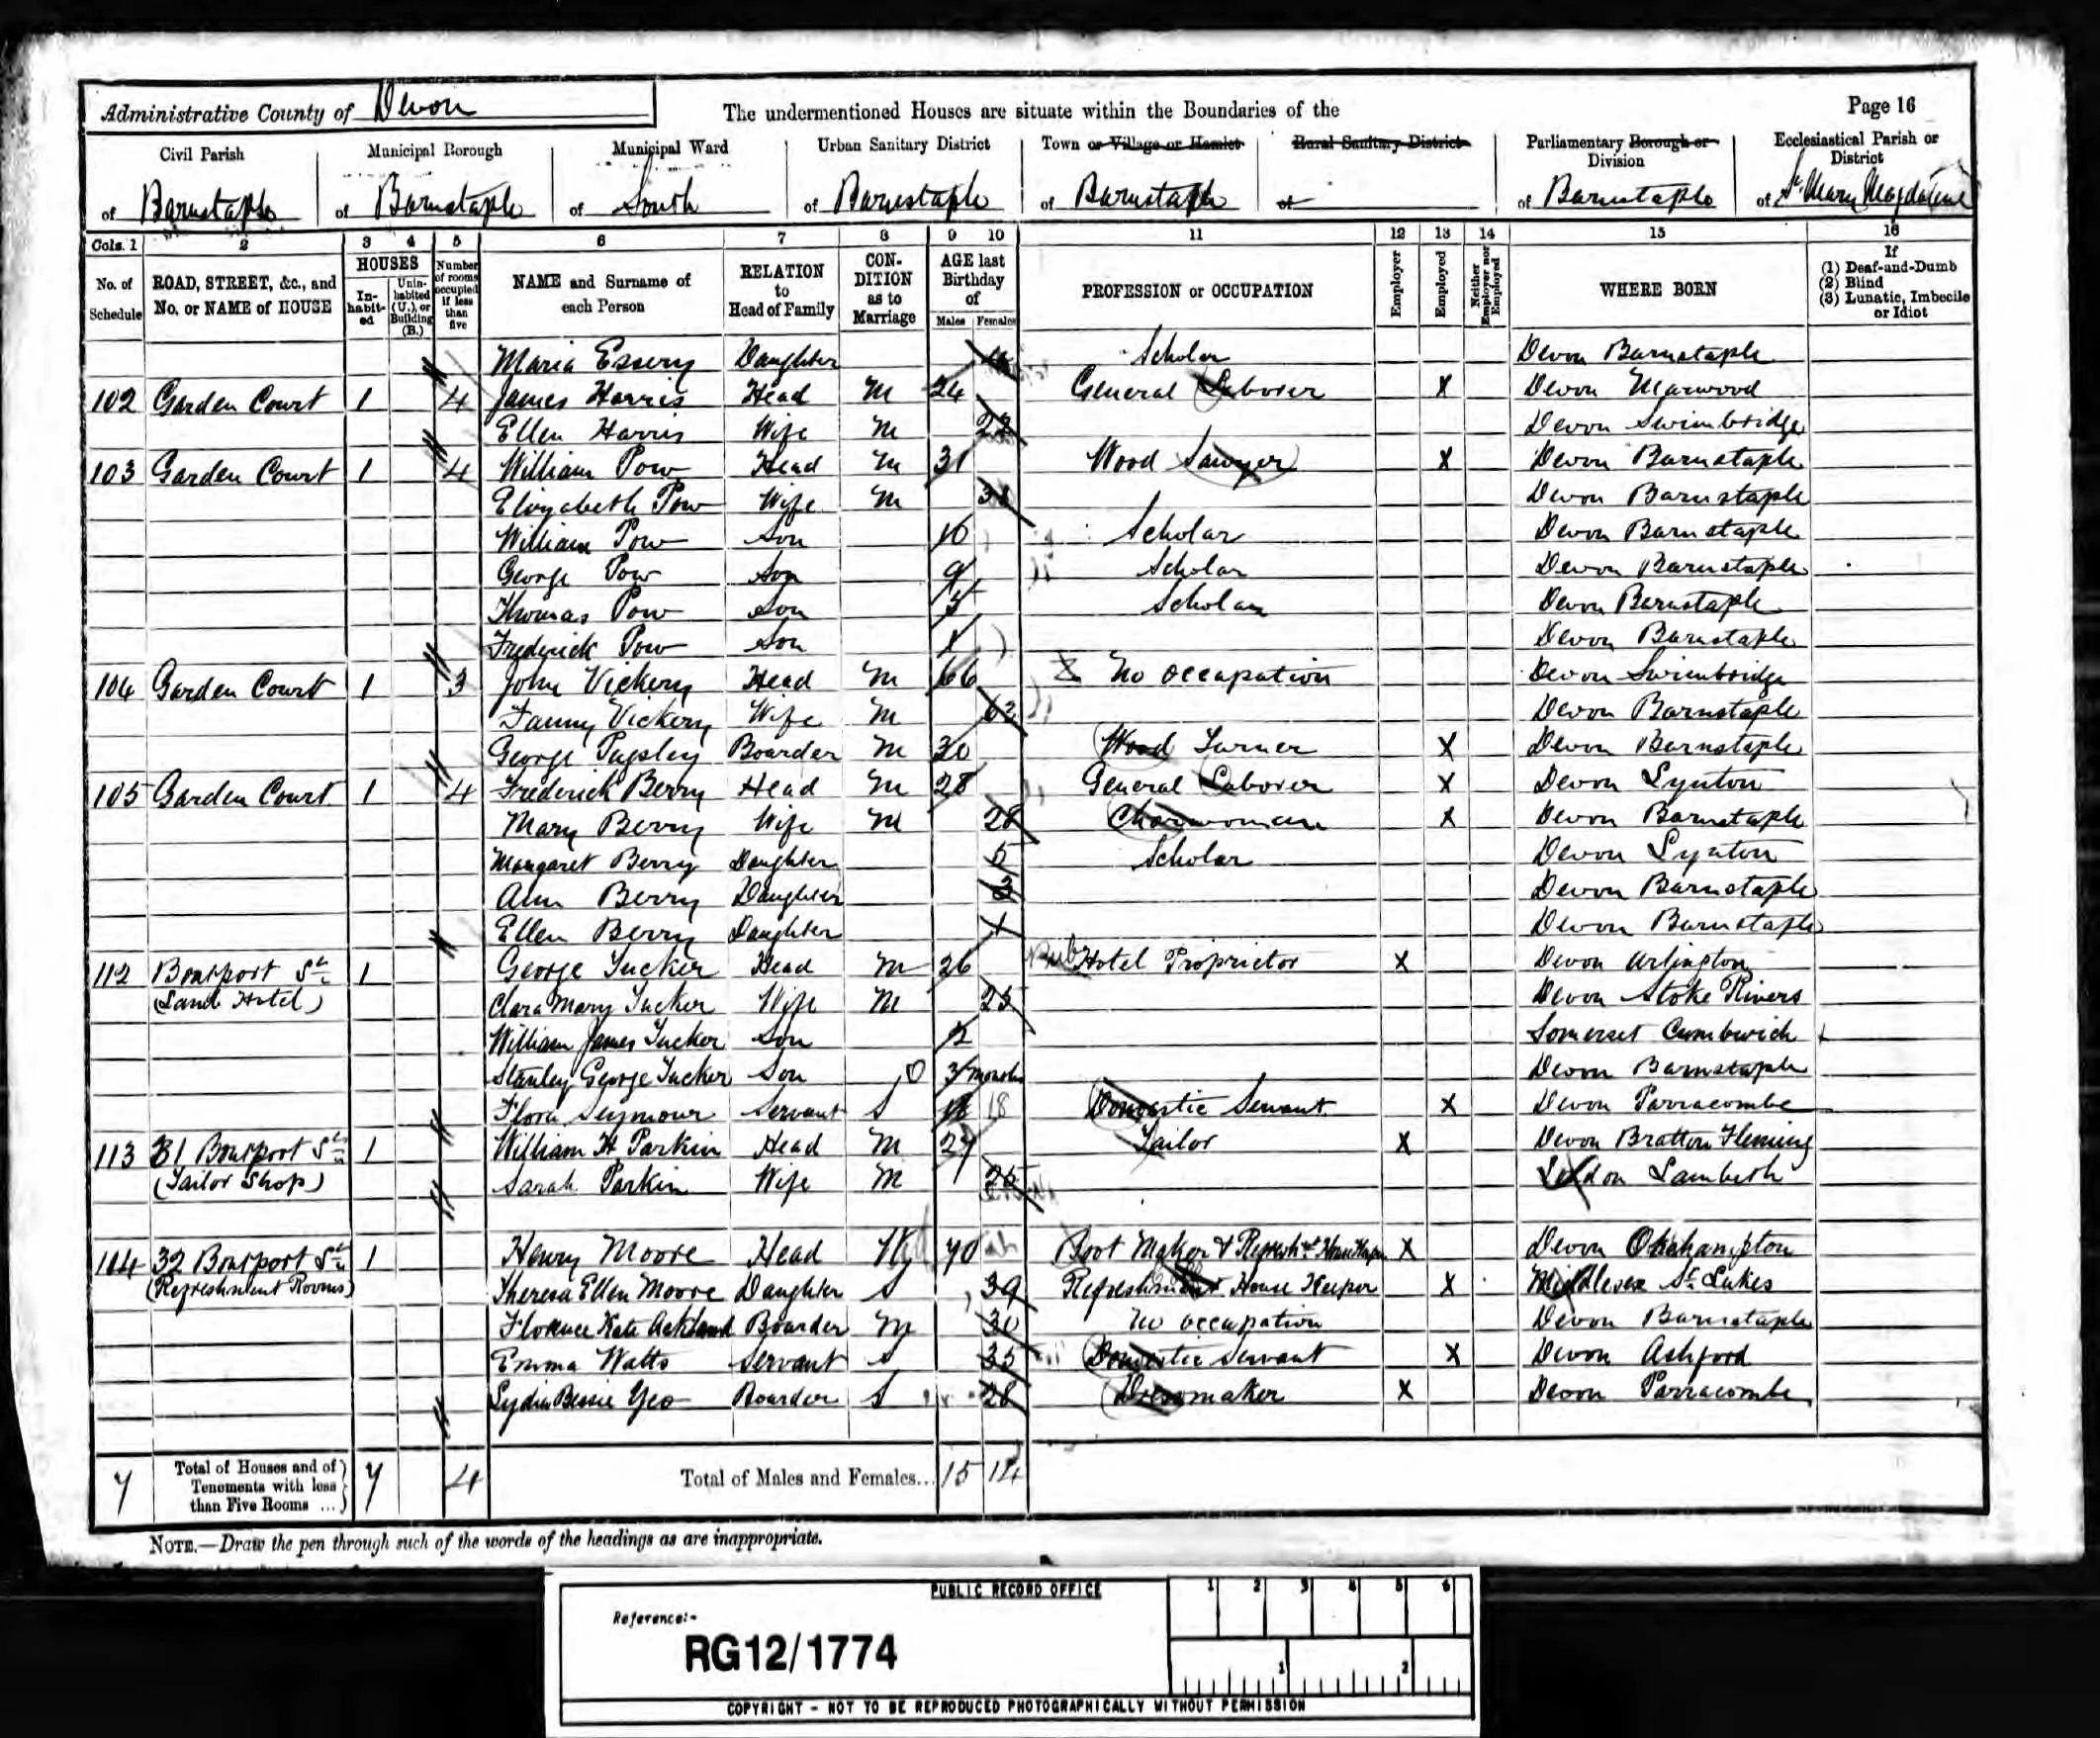 Administrative County of Devon
The undermentioned Houses are situate within the Boundaries of the
Page 16
Civil Parish of Barnstaple
Municipal Borough of Barnstaple
Municipal Ward of South
Urban Sanitary District of Barnstaple
Town or Village or Hamlet of Barnstaple
Rural Sanitary District of
Parliamentary Borough or Division of Barnstaple
Ecclesiastical Parish or District of St. Mary Magdalene
Cols. 1 2 3 4 5 6 7 8 9 10 11 12 13 14 15 16
No. of Schedule
ROAD, STREET, &c., and No. or NAME of HOUSE
HOUSES
In-habit-ed
Unin-habited (U.), or Building (B.)
Number of rooms occupied if less than five
NAME and Surname of each Person
RELATION to Head of Family
CON-DITION as to Marriage
AGE last Birthday of
Males Females
PROFESSION or OCCUPATION
Employer
Employed
Neither Employer nor Employed
WHERE BORN
If
(1) Deaf-and-Dumb
(2) Blind
(3) Lunatic, Imbecile or Idiot
Maria Essery Daughter Scholar Devon Barnstaple
102 Garden Court 1 4 James Harris Head M 24 General Laborer X Devon Marwood
Ellen Harris Wife M 22 Devon Swimbridge
103 Garden Court 1 4 William Pow Head M 31 Wood Sawyer X Devon Barnstaple
Elizabeth Pow Wife M Devon Barnstaple
William Pow Son 10 Scholar Devon Barnstaple
George Pow Son 9 Scholar Devon Barnstaple
Thomas Pow Son Scholar Devon Barnstaple
Frederick Pow Son 1 Devon Barnstaple
104 Garden Court 1 3 John Vickery Head M 66 No occupation Devon Swimbridge
Fanny Vickery Wife M 62 Devon Barnstaple
George Pugsley Boarder M 30 Wood Turner X Devon Barnstaple
105 Garden Court 1 4 Frederick Berry Head M 28 General Laborer X Devon Lynton
Mary Berry Wife M 28 Charwoman X Devon Barnstaple
Margaret Berry Daughter 5 Scholar Devon Lynton
Ann Berry Daughter 3 Devon Barnstaple
Ellen Berry Daughter 1 Devon Barnstaple
112 Boutport St 1 George Tucker Head M 26 Pub Hotel Proprietor X Devon Arlington
Hotel) Clara Mary Tucker Wife M 25 Devon Stoke Rivers
William James Tucker Son 2 Somerset Cumbwich
Stanley George Tucker Son 3 months Devon Barnstaple
Flora Seymour Servant S 18 18 Domestic Servant X Devon Parracombe
113 31 Boutport St 1 William H Parkin Head M 27 Tailor X Devon Bratton Fleming
(Tailor Shop) Sarah Parkin Wife M 25 London Lambeth
114 32 Boutport St 1 Henry Moore Head Wd 70 Boot Maker & Refresht House Keeper X Devon Okehampton
(Refreshment Rooms) Theresa Ellen Moore Daughter S 39 Refreshment House Keeper X Middlesex St Lukes
Florence Kate Ackland Boarder M 30 No occupation Devon Barnstaple
Emma Watts Servant S 35 Domestic Servant X Devon Ashford
Lydia Bessie Yeo Boarder S 28 Dressmaker X Devon Parracombe
7 Total of Houses and of Tenements with less than Five Rooms ... 7 4 Total of Males and Females... 15 14
NOTE.—Draw the pen through such of the words of the headings as are inappropriate.
PUBLIC RECORD OFFICE
1 2 3 4 5 6
Reference:-
RG12/1774
1 2
COPYRIGHT - NOT TO BE REPRODUCED PHOTOGRAPHICALLY WITHOUT PERMISSION